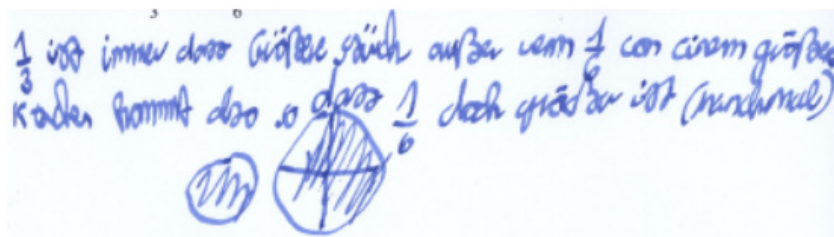 3 6
1/3 ist immer das Größere stück außer wenn 1/6 von einem größeren
Kuchen kommt also so dass 1/6 doch größer ist (manchmal)